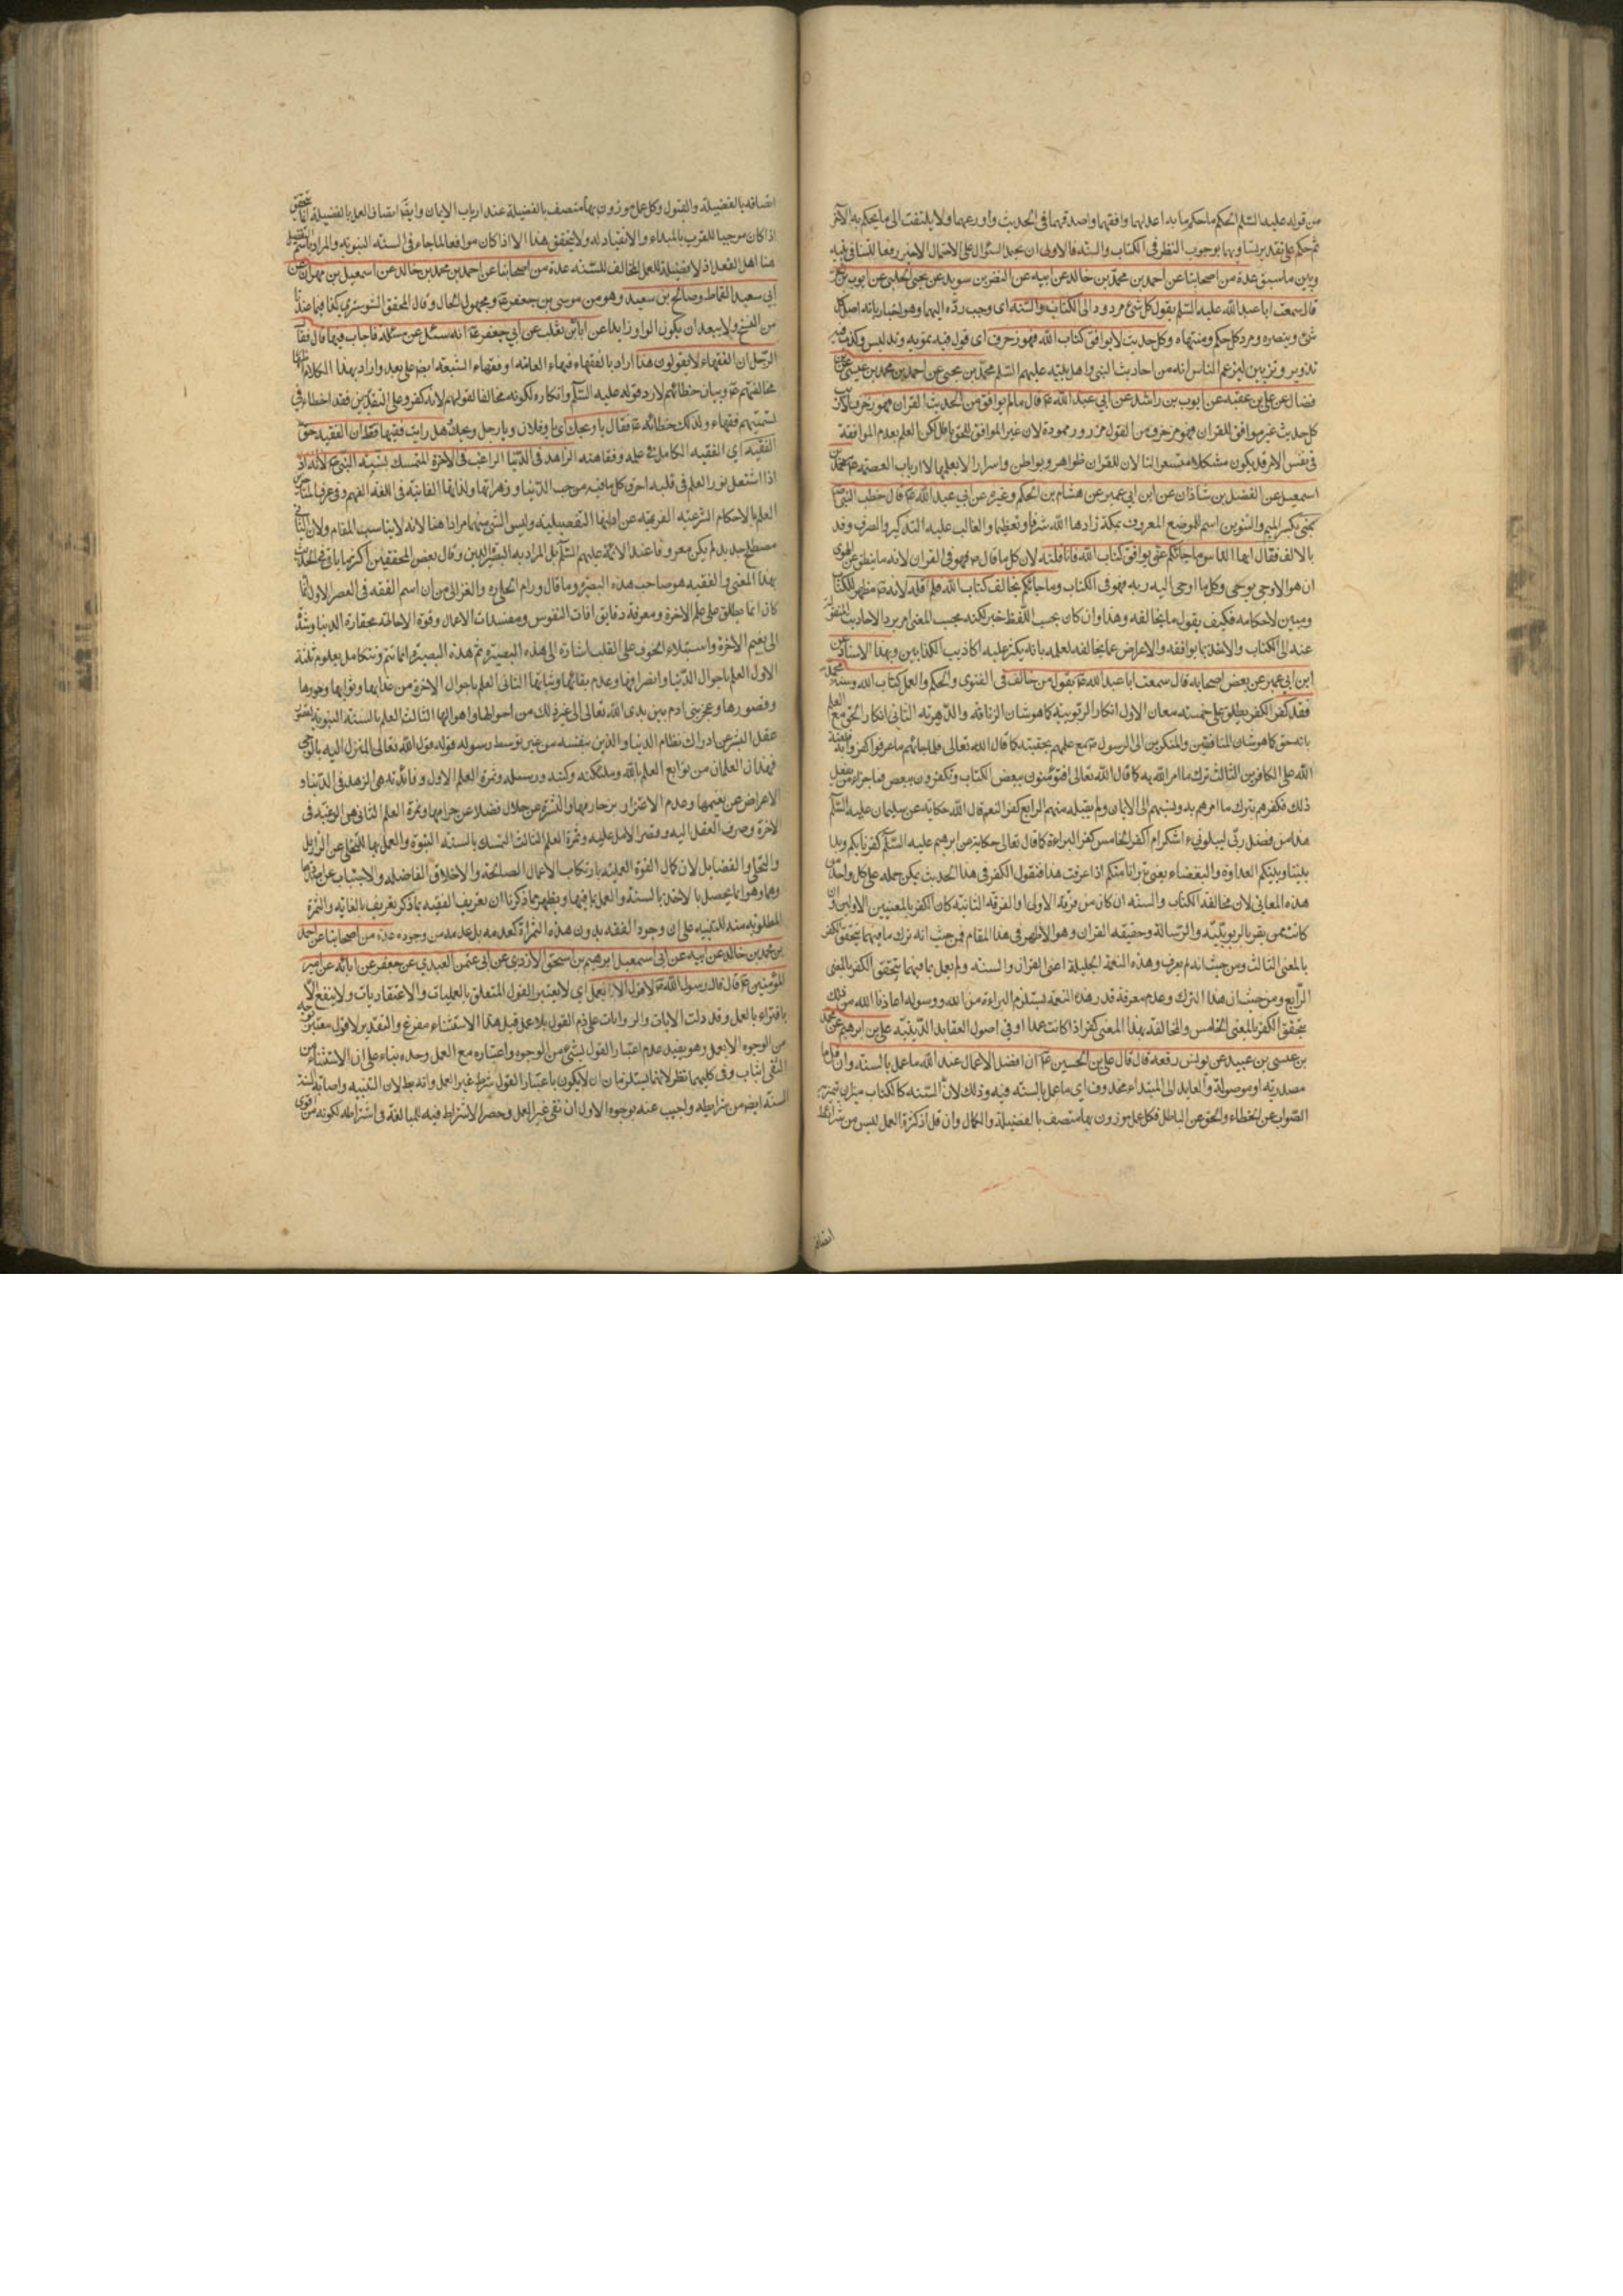 من قوله عليه السلم الحكم ما حكم به اعدلهما وافقههما واصدقهما فى الحديث واورعهما ولا يلتفت الى ما يحكم به الآخر
ثم حكم على تقدير تساويهما بوجوب النظر فى الكتاب والسنة فالاولى ان يحمل السؤال على الاحتمال الاخير رفعا للتنافى بينه
وبين ما سبق عدة من اصحابنا عن احمد بن محمد بن خالد عن ابيه عن النضر بن سويد عن يحيى الحلبى عن ايوب بن الحر
قال سمعت ابا عبد الله عليه السلم يقول كل شئ مردود الى الكتاب والسنة اى وجب رده اليهما وهو اخبار بانه اصل كل
شئ ومصدره ومرد كل حكم ومنتهاه وكل حديث لا يوافق كتاب الله فهو زخرف اى قول فيه تمويه وتدليس وكذب
تزوير وتزيين ليزعم الناس انه من احاديث النبى واهل بيته عليهم السلم محمد بن يحيى عن احمد بن محمد بن عيسى عن
فضال عن على بن عقبه عن ايوب بن راشد عن ابى عبد الله ع قال ما لم يوافق من الحديث القران فهو زخرف لان
كل حديث غير موافق للقران فهو مزخرف من القول مزور مموه لان غير الموافق للحق باطل لكن العلم بعدم الموافقة
فى نفس الامر قد يكون مشكلا متعسرا لنا لان للقران ظواهر وبواطن واسرارا لا يعلمها الا ارباب العصمة محمد بن
اسمعيل عن الفضل بن شاذان عن ابن ابى عمير عن هشام بن الحكم وغيره عن ابى عبد الله ع قال خطب النبى ص
بمنى بكسر الميم والتنوين اسم للموضع المعروف بمكة زادها الله شرفا وتعظيما والغالب عليه التذكير والصرف وقد
بالالف فقال ايها الناس ما جاءكم عنى يوافق كتاب الله فانا قلته لان كل ما قال ص فهو فى القران لانه ما ينطق عن الهوى
ان هو الا وحى يوحى وكل ما اوحى اليه ربه فهو فى الكتاب وما جاءكم يخالف كتاب الله فلم اقله لانه ص مظهر للكتاب
ومبين لاحكامه فكيف يقول ما يخالفه وهذا وان كان بحسب اللفظ خبر لكنه بحسب المعنى امر برد الاحاديث المنقولة
عنه الى الكتاب والاخذ بما يوافقه والاعراض عما يخالفه لعلمه بانه يكثر عليه اكاذيب الكذابين وبهذا الاسناد عن
ابن ابى عمير عن بعض اصحابه قال سمعت ابا عبد الله ع يقول من خالف فى الفتوى والحكم والعمل كتاب الله وسنة محمد
فقد كفر الكفر يطلق على خمسة معان الاول انكار الربوبية كما هو شان الزنادقه والدهرية الثانى انكار الحق مع العلم
بانه حق كما هو شان المنافقين والمنكرين الى الرسول ص مع علمهم بحقيته كما قال الله تعالى فلما جاءهم ما عرفوا كفروا به فلعنة
الله على الكافرين الثالث ترك ما امر الله به كما قال الله تعالى افتؤمنون ببعض الكتاب وتكفرون ببعض فما جزاء من يفعل
ذلك فكفرهم بترك ما امرهم به ونسبهم الى الايمان ولم يقبله منهم الرابع كفر النعم قال الله حكاية عن سليمان عليه السلم
هذا من فضل ربى ليبلونى ءاشكر ام اكفر الخامس كفر البراءة كما قال تعالى حكاية عن ابرهيم عليه السلم كفرنا بكم وبدا
بيننا وبينكم العداوة والبغضاء يعنى تبرانا منكم اذا عرفت هذا فنقول الكفر فى هذا الحديث يمكن حمله على كل واحد من
هذه المعانى لان مخالفة الكتاب والسنه ان كان من فرقة الاولى او الفرقة الثانية كان الكفر بالمعنيين الاولين وان
كانت ممن يقر بالربوبية والرسالة وحقيقة القران وهو الاظهر فى هذا المقام فمن حيث انه ترك ما فيهما يتحقق الكفر
بالمعنى الثالث ومن حيث انه لم يعرف وهذه النعمة الجليلة اعنى القران والسنه ولم يعمل بما فيهما يتحقق الكفر بالمعنى
الرابع ومن حيث ان هذا الترك وعدم معرفة قدر هذه النعمة يستلزم البراءة من الله ورسوله اعاذنا الله من ذلك
يتحقق الكفر بالمعنى الخامس والمخالفة بهذا المعنى كفر اذا كانت عمدا او فى اصول العقايد الدينية على بن ابرهيم عن محمد
بن عيسى بن عبيد عن يونس رفعه قال قال على بن الحسين ع ان افضل الاعمال عند الله ما عمل بالسنة وان قل ما
مصدرية او موصولة والعايد الى المبتداء محذوف اى ما عمل بالسنة فيه وذلك لان السنه كالكتاب ميزان يتميز به
الصواب عن الخطاء والحق عن الباطل فكل عمل موزون بها متصف بالفضيلة والكمال وان قل اذ كثرة العمل ليس من شرايط
اتصافه
اتصافه بالفضيلة والقبول وكل عمل موزون بها متصف بالفضيلة عند ارباب الايمان وايضا اتصاف العمل بالفضيلة انما يتحقق
اذا كان موجبا للقرب بالمبداء والانقياد له ولا يتحقق هذا الا اذا كان موافقا لما جاء فى السنة النبوية والمراد باسم التفضيل
هنا اصل الفعل اذ لا فضيلة للعمل المخالف للسنه عدة من اصحابنا عن احمد بن محمد بن خالد عن اسمعيل بن مهران عن
ابى سعيد القماط وصالح بن سعيد وهو من موسى بن جعفر ع ومجهول الحال وقال المحقق الشوشترى كذا فيما عندنا
من النسخ ولا يبعد ان يكون الواو زايدا عن ابان بن تغلب عن ابى جعفر ع انه سئل عن مسئلة فاجاب فيها قال فقال
الرجل ان الفقهاء لا يقولون هذا اراد بالفقهاء فقهاء العامة او فقهاء الشيعه ايضا على بعد واراد بهذا الكلام
مخالفتهم ع وبيان خطائهم لا رد قوله عليه السلم وانكاره لكونه مخالفا لقولهم لانه كفر وعلى التقديرين فقد اخطاء فى
تسميتهم فقهاء ولذلك خطائه ع فقال يا ويحك اى يا فلان ويا رجل ويحك وهل رايت فقيها قط ان الفقيه حق
الفقيه اى الفقيه الكامل فى علمه وفقاهته الزاهد فى الدنيا الراغب فى الاخرة المتمسك بسنة النبى ص لانه
اذا اشتعل نور العلم فى قلبه احرق كل ما فيه من حب الدنيا وزهراتها ولذاتها الفانية فى اللغة الفهم وفى عرف
العلم بالاحكام الشرعية الفرعية عن ادلتها التفصيلية وليس الشئ منهما مرادا هنا لانه لا يناسب المقام ولان الثانى
مصطلح جديد لم يكن معروفا عند الائمة عليهم السلم بل المراد به البصيرة فى الدين وقال بعض المحققين اكثر ما ياتى فى الحديث
بهذا المعنى والفقيه هو صاحب هذه البصيرة وما قال ورام الحلى ره والغزالى من ان اسم الفقه فى العصر الاول انما
كان انما يطلق على علم الاخرة ومعرفة دقايق افات النفوس ومفسدات الاعمال وقوة الاحاطة بحقارة الدنيا وشدة
الى نعيم الاخرة واستيلاء الخوف على القلب اشارة الى هذه البصيرة وثم هذه البصيرة انما تتم وتتكامل بعلوم ثلثة
الاول العلم باحوال الدنيا وانصرامها وعدم بقائها وثباتها الثانى العلم باحوال الاخرة من عذابها وثوابها وحورها
وقصورها وعجز بنى ادم بين يدى الله تعالى الى غير ذلك من احوالها واهوالها الثالث العلم بالسنة النبوية
عقل البشر عن ادراك نظام الدنيا والدين بنفسه من غير توسط رسوله قوله قول الله تعالى المنزل اليه بالوحى
فهذان العلمان من توابع العلم بالله وملئكته وكتبه ورسله وثمرة العلم الاول وفائدته هى الزهد فى الدنيا و
الاعراض عن نعيمها وعدم الاغترار بزخارفها والتنزه عن حلال فضلا عن حرامها وثمرة العلم الثانى هى الرغبة فى
الاخرة وصرف العقل اليه وقصر الامل عليه وثمرة العلم الثالث التمسك بالسنة النبوة والعمل بها للتخلى عن الرذايل
والتحلى والفضايل لان كمال القوة العملية بارتكاب الاعمال الصالحة والاخلاق الفاضله والاجتناب عن
وهو انما يحصل بالاخذ بالسنة والعمل بما فيها ويظهر مما ذكرنا ان تعريف الفقيه بما ذكر تعريف بالغاية والثمرة
المطلوبة منه للتنبيه على ان وجود الفقه بدون هذه الثمرات كعدمه بل عدمه من وجوده عدة من اصحابنا عن احمد
بن محمد بن خالد عن ابيه عن ابى اسمعيل ابرهيم بن اسحق الازدى عن ابى عثمن العبدى عن جعفر عن ابائه عن امير
المؤمنين ع قال قال رسول الله ص لا قول الا بعمل اى لا يعتبر القول المتعلق بالعمليات والاعتقاديات ولا ينفع الا
باقترائه بالعمل وقد دلت الايات والروايات على ذم القول بلا عمل قيل هذا الاستثناء مفرغ والتقدير لا قول معتبر
من الوجوه الا بعمل وهو يفيد عدم اعتبار القول بشئ من الوجوه واعتباره مع العمل وحده بناء على ان الاستثناء من
النفى اثبات وفى كليهما نظر لانهما يستلزمان ان لا يكون باعتبار القول شرط غير العمل وانه بط لان النية واصابة السنة
السنة ايضا من شرايطه واجيب عنه بوجوه الاول ان نفى غير العمل وحصر الاشتراط فيه للمبالغة فى اشتراطه لكونه اقوى